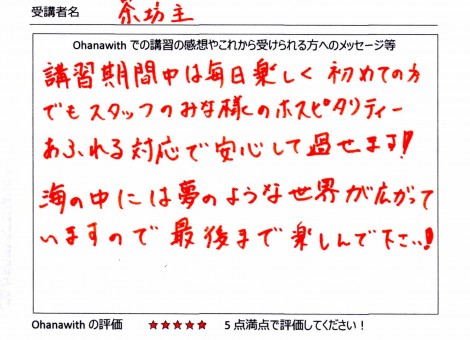 受講者名 茶坊主
Ohanawith での講習の感想やこれから受けられる方へのメッセージ等
講習期間中は毎日楽しく 初めての方
でもスタッフのみな様のホスピタリティー
あふれる対応で安心して過せます!
海の中には夢のような世界が広がって
いますので 最後まで楽しんで下さい!
Ohanawith の評価 ★★★★★ 5 点満点で評価してください!